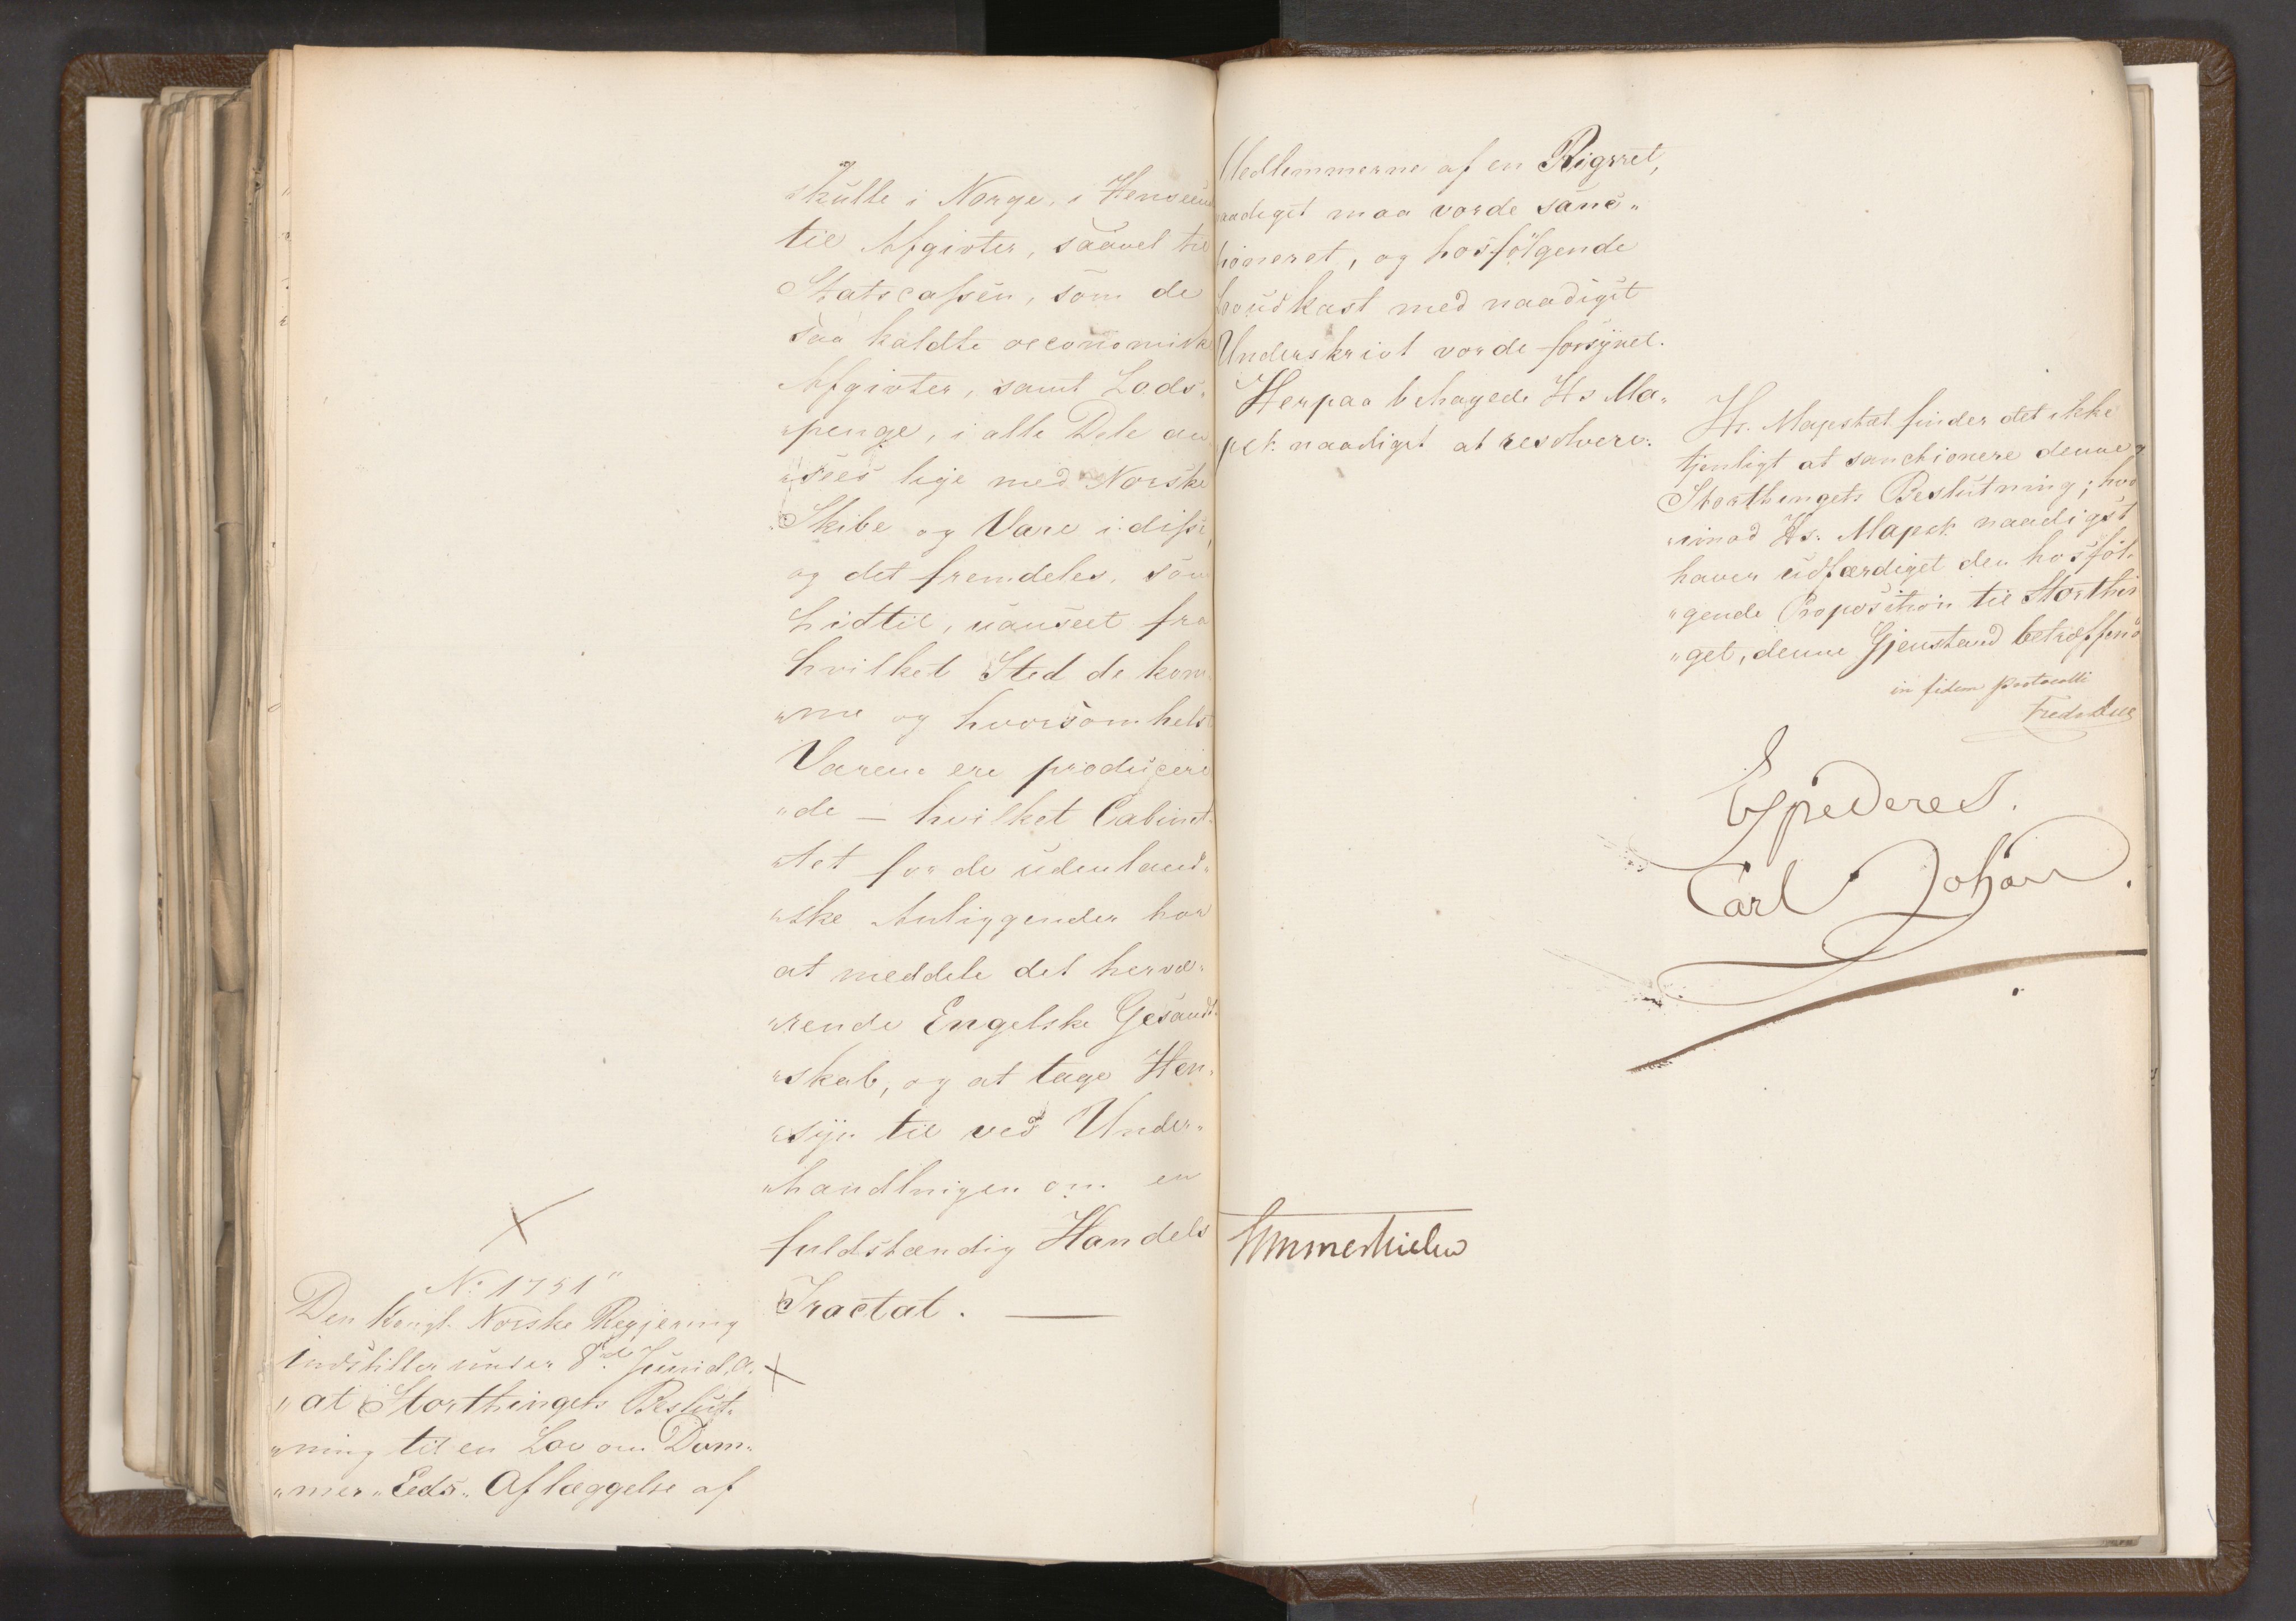 skulle i Norge, i Henseende
til Afgivter, saavel til
Statscassen, som de
saa kaldte oeconomiske
Afgivter, samt Lods-
„penge, i alle Dele an-
„sees lige med Norske
Skibe og Vare i disse,
og det fremdeles, som
hidtil, uanseet fra
hvilket Sted de kom-
„me og hvorsomhelst
Varene ere producere
„de — hvilket Cabinet-
„tet for de udenland-
„ske Anliggender har
at meddele det hervæ-
„rende Engelske Gesandt-
„skab, og at tage Hen-
„syn til ved Under-
„handlingen om en
fuldstændig Handels
Tractat. —
X
No 1751"
Den Kongl. Norske Regjering
indstiller under 8de Juni d. A. X
„at Storthingets Beslut-
„ning til en Lov om Dom-
„mer-Eeds-Aflæggelse af
Medlemmerne af en Rigsret,
naadigst maa vorde sanc-
tioneret, og hosfölgende
Lovudkast med naadigst
Underskrivt vorde forsynet.
Herpaa behagede Hs Ma-
jest. naadigst at resolvere:
Hs. Majestæt finder det ikke
tjenligt at sanctionere denne
Storthingets Beslutning; hvor
„imod Hs. Majest. naadigst
haver udfærdiget den hosföl-
„gende Proposition til Storthin
„get, denne Gjenstand betræffende
in fidem protocolli
Expederes.
Carl Johan.